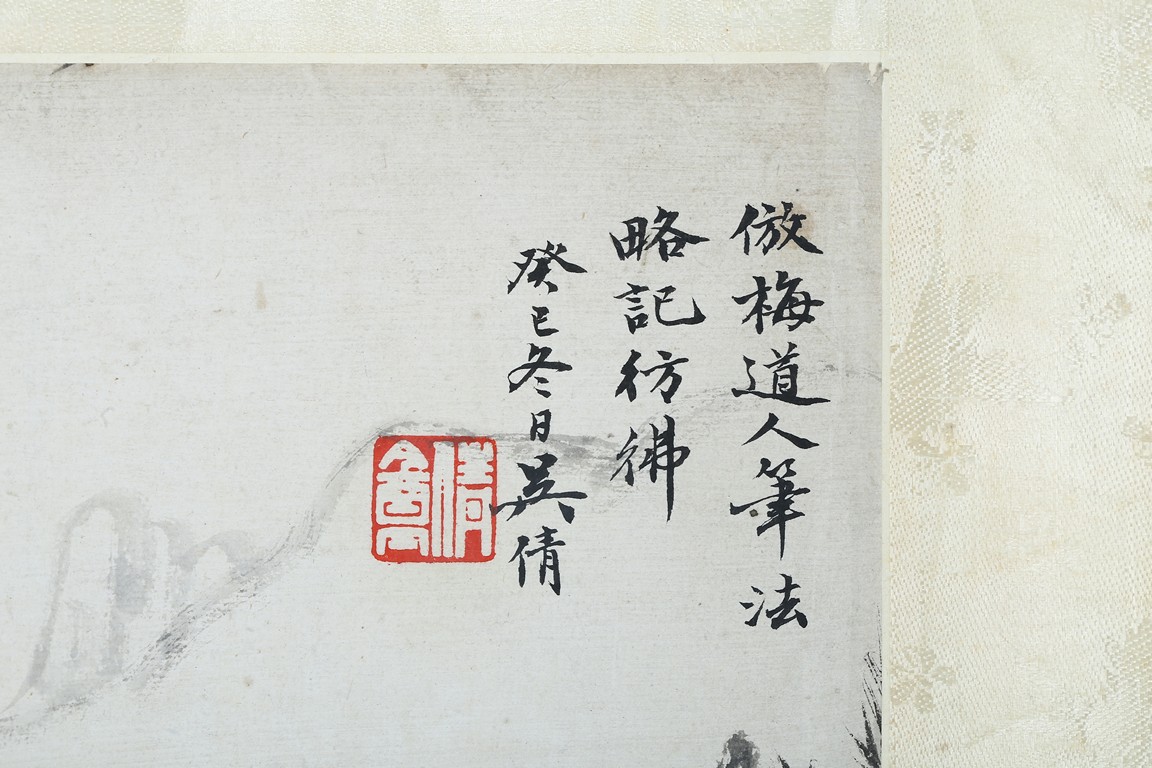 倣梅道人筆法
略記彷彿
癸巳冬日吳倩
倩盦